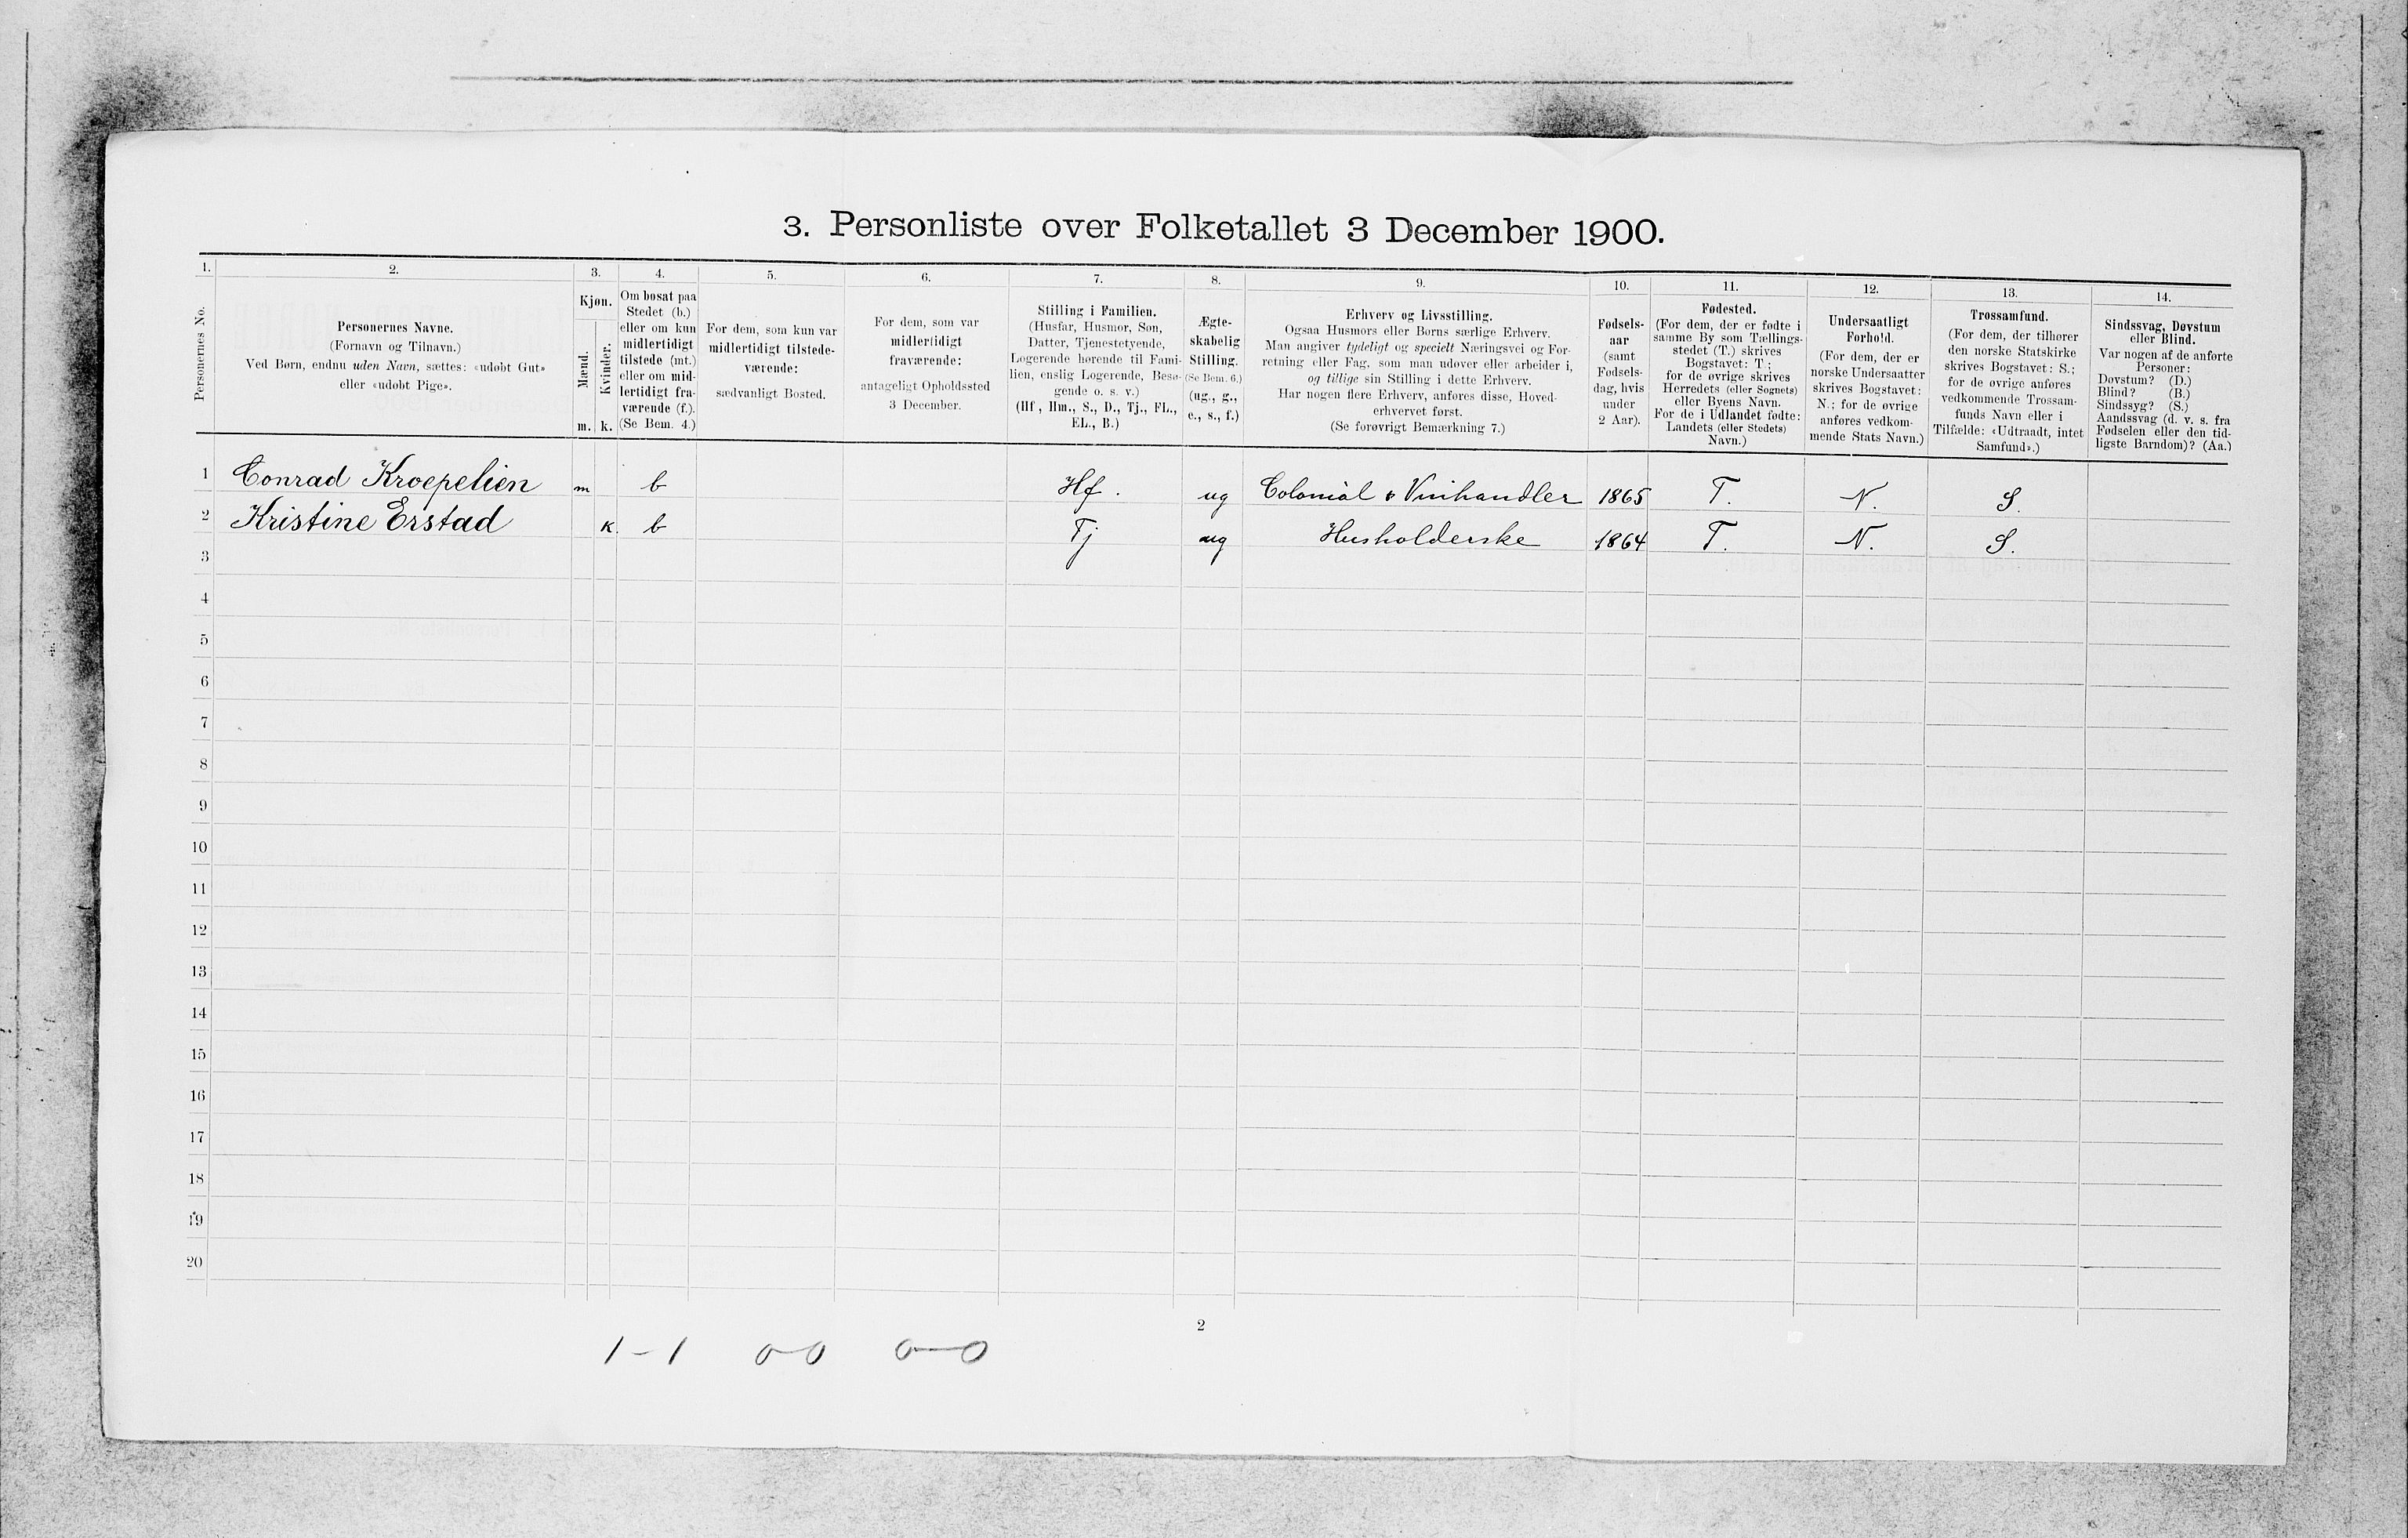 3. Personliste over Folketallet 3 December 1900.
1. 2. 3. 4. 5. 6. 7. 8. 9. 10. 11. 12. 13. 14.
Personernes No.
Personernes Navne.
(Fornavn og Tilnavn.)
Ved Børn, endnu uden Navn, sættes: «udøbt Gut»
eller «udøbt Pige».
Kjøn.
Mænd.
Kvinder.
m. k.
Om bosat paa
Stedet (b.)
eller om kun
midlertidigt
tilstede (mt.)
eller om mid-
lertidigt fra-
værende (f.).
(Se Bem. 4.)
For dem, som kun var
midlertidigt tilstede-
værende:
sædvanligt Bosted.
For dem, som var
midlertidigt
fraværende:
antageligt Opholdssted
3 December.
Stilling i Familien.
(Husfar, Husmor, Søn,
Datter, Tjenestetyende,
Logerende hørende til Fami-
lien, enslig Logerende, Besø-
gende o. s. v.)
(Hf, Hm., S., D., Tj., FL.,
EL., B.)
Ægte-
skabelig
Stilling.
(Se Bem. 6.)
(ug., g.,
e., s., f.)
Erhverv og Livsstilling.
Ogsaa Husmors eller Børns særlige Erhverv.
Man angiver tydeligt og specielt Næringsvei og For-
retning eller Fag, som man udøver eller arbeider i,
og tillige sin Stilling i dette Erhverv.
Har nogen flere Erhverv, anføres disse, Hoved-
erhvervet først.
(Se forøvrigt Bemærkning 7.)
Fødsels-
aar
(samt
Fødsels-
dag, hvis
under
2 Aar).
Fødested.
(For dem, der er fødte i
samme By som Tællings-
stedet (T.) skrives
Bogstavet: T.;
for de øvrige skrives
Herredets (eller Sognets)
eller Byens Navn.
For de i Udlandet fødte:
Landets (eller Stedets)
Navn.)
Undersaatligt
Forhold.
(For dem, der er
norske Undersaatter
skrives Bogstavet:
N.; for de øvrige
anføres vedkom-
mende Stats Navn.)
Trossamfund.
(For dem, der tilhører
den norske Statskirke
skrives Bogstavet: S.;
for de øvrige anføres
vedkommende Trossam-
funds Navn eller i
Tilfælde: «Udtraadt, intet
Samfund».)
Sindssvag, Døvstum
eller Blind.
Var nogen af de anførte
Personer:
Døvstum? (D.)
Blind? (B.)
Sindssyg? (S.)
Aandssvag (d. v. s. fra
Fødselen eller den tid-
ligste Barndom)? (Aa.)
1 Conrad Kroepelien m b Hf. ug Colonial & Vinhandler 1865 T. N. S.
2 Kristine Erstad k. b Tj ug Husholderske 1864 T. N. S.
3
4
5
6
7
8
9
10
11
12
13
14
15
16
17
18
19
20
2
1-1 0-0 0-0